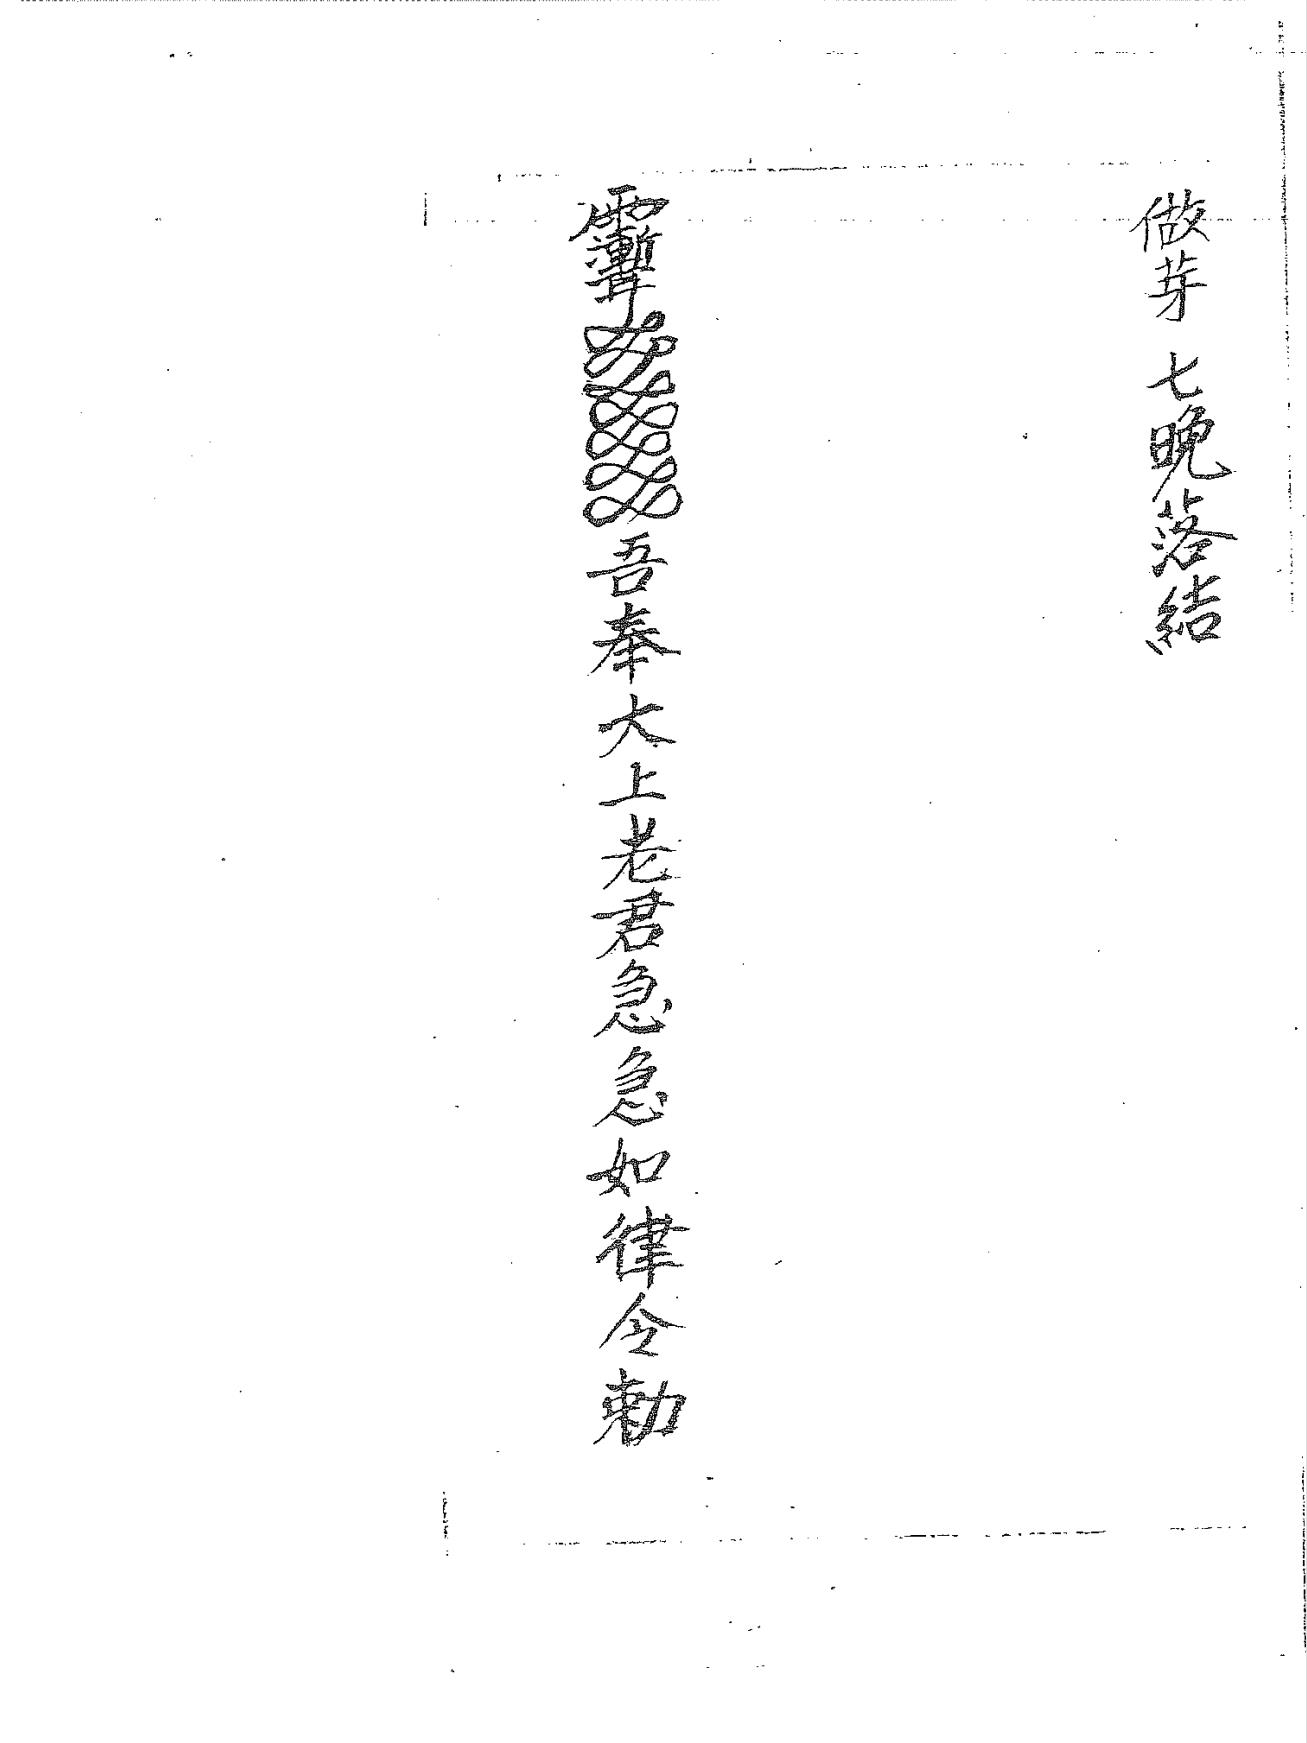 做芽 七晚落結
吾奉大上老君急急如律令勅